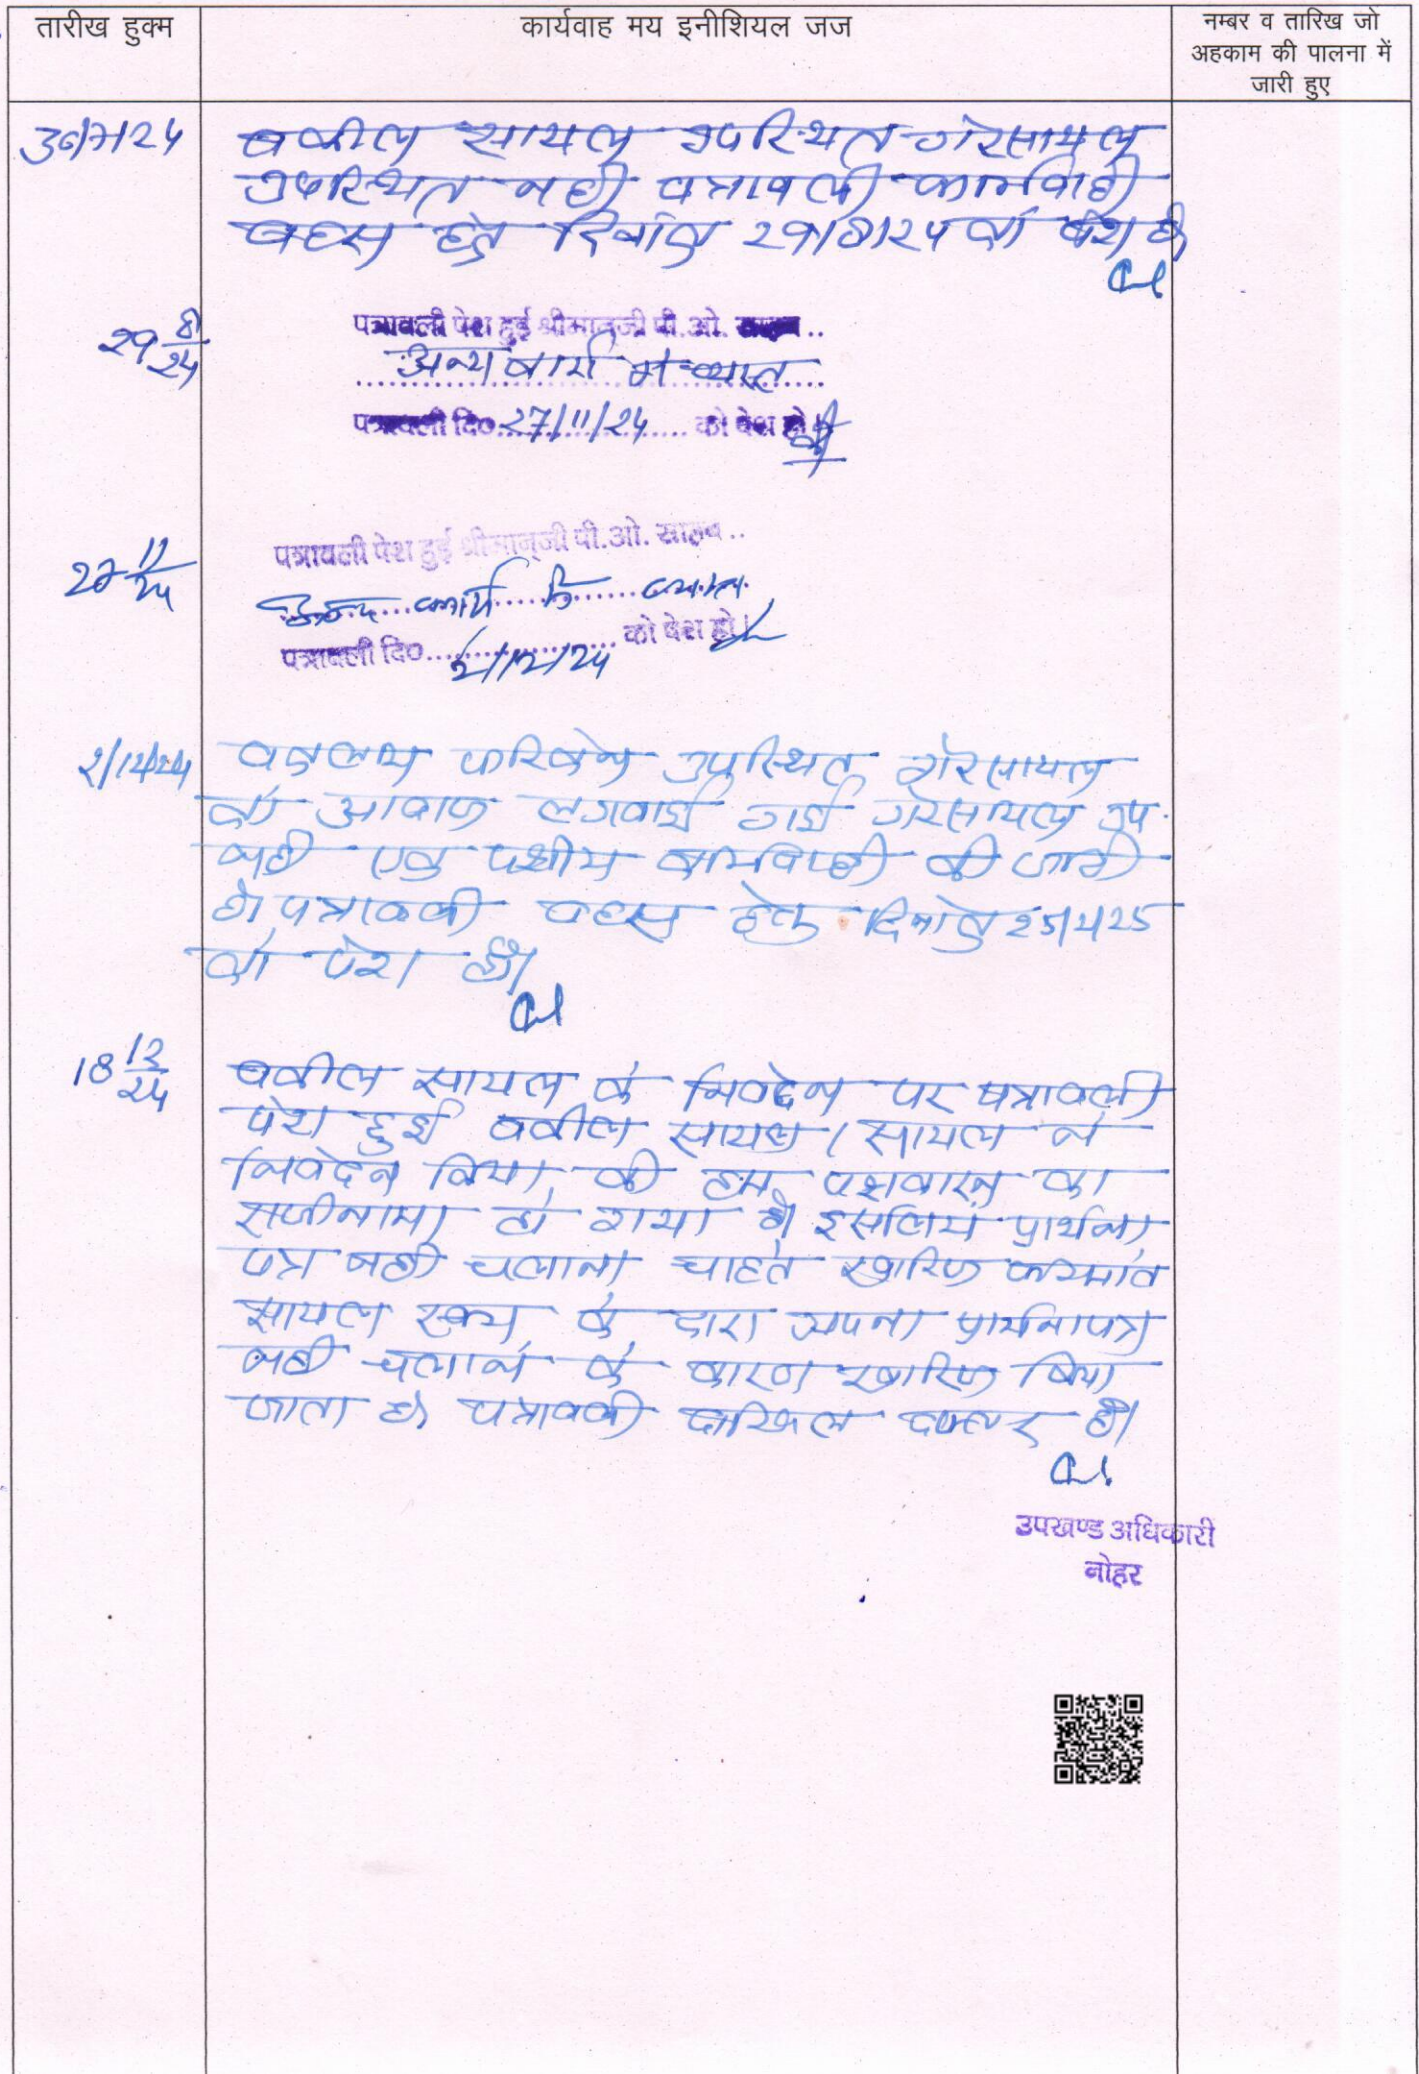 तारीख हुक्म
कार्यवाह मय इनीशियल जज
नम्बर व तारिख जो
अहकाम की पालना में
जारी हुए
30/7/24
वकील सायल उपस्थित गैरसायल
उपस्थित नही पत्रावली कार्यवाही
बहस हेतु दिनांक 29/8/24 को पेश हो
29 8/24
पत्रावली पेश हुई श्रीमान्‌जी पी.ओ. साहब..
अन्य कार्य में व्यस्त
पत्रावली दि० 27/11/24 को पेश हो
27 11/24
पत्रावली पेश हुई श्रीमान्‌जी पी.ओ. साहब..
कार्य
पत्रावली दि० 2/12/24 को पेश हो।
2/12/24
वकलाय फरिकेन उपस्थित गैरसायल
को आवाज लगवाई गई गैरसायल उप.
नही एक पक्षीय कार्यवाही की जाती
है पत्रावली बहस हेतु दिनांक 25/2/25
को पेश हो।
18 12/24
वकील सायल के निवेदन पर पत्रावली
पेश हुई वकील सायल / सायल ने
निवेदन किया की हम पक्षकारन का
राजीनामा हो गया है इसलिये प्रार्थना
पत्र नही चलाना चाहते खारिज फरमावे
सायल स्वयं के द्वारा अपना प्रार्थनापत्र
नही चलाने के कारण खारिज किया
जाता है पत्रावली दाखिल दफ्तर हो।
उपखण्ड अधिकारी
नोहर